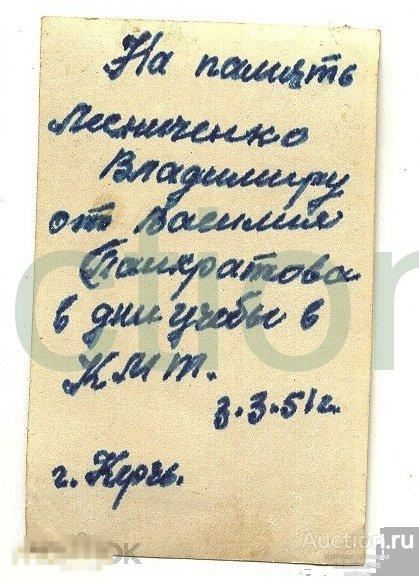 На память
Лесниченко
Владимиру
от Василия
Панкратова
в дни учебы в
К М Т.
3.3.51г.
г. Керчь.
Auction.ru